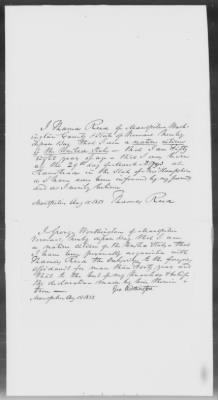 I Thomas Reed of Montpelier Wash-
ington County & State of Vermont hereby
depose & say that I am a native citizen
of the United States & that I am fifty
eight years of age & that I was born
at the 29th day of March at
in the State of New Hampshire
as I have ever been informed by my parents
and as I verily believe
Montpelier Aug 15 1853 Thomas Reed
I George Worthington of Montpelier
Vermont, hereby depose & say that I am
a native citizen of the United States & that
I have been personally acquainted with
Thomas Reed the subscriber to the foregoing
affidavit for more than forty years and
that to the best of my knowledge & belief
the declaration made by him therein is
true
Geo Worthington
Montpelier Aug 15 1853